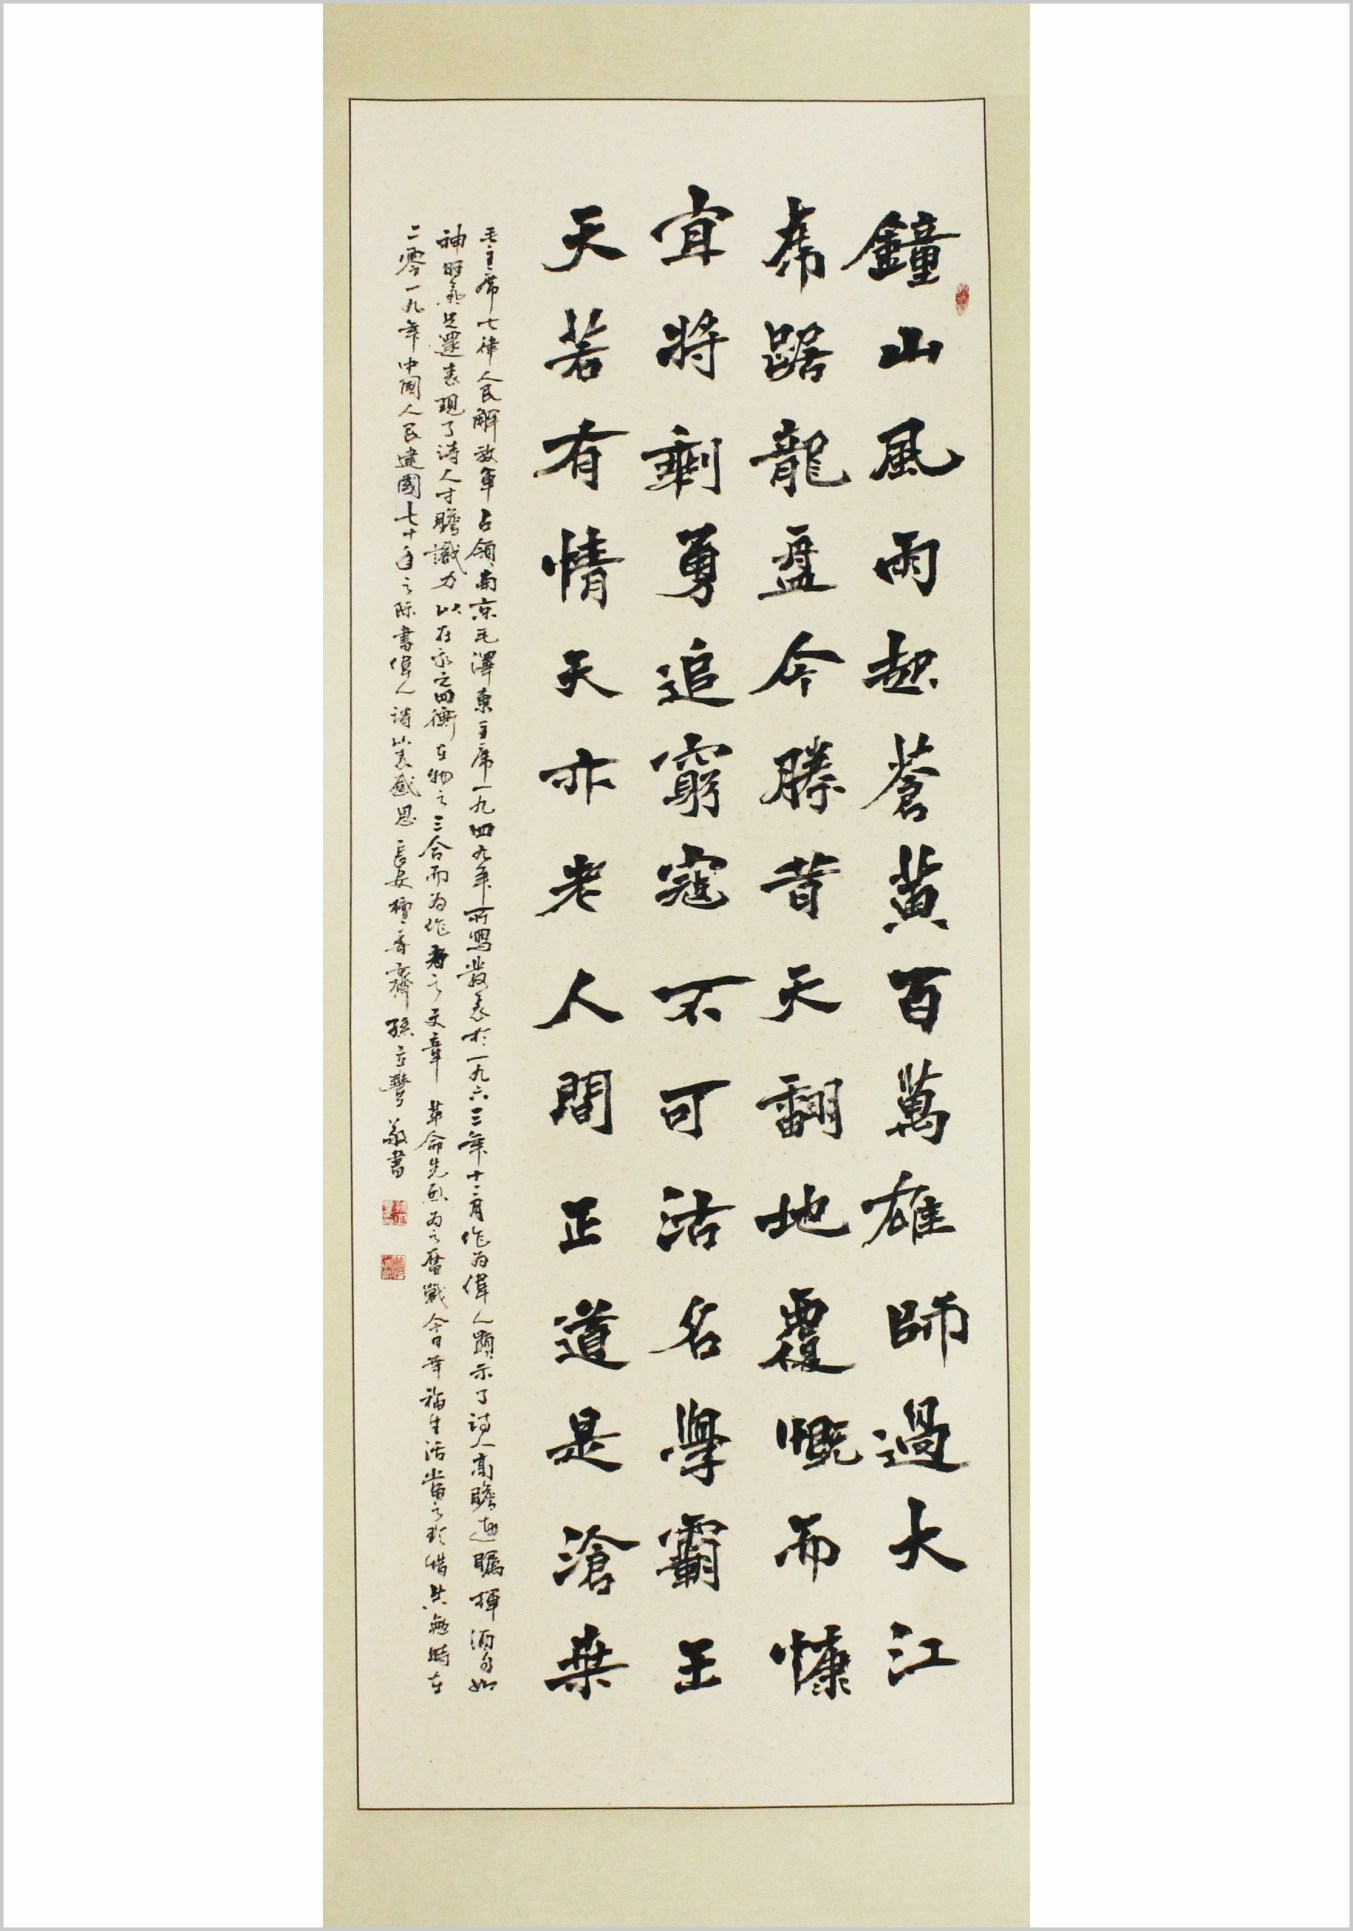 鐘山風雨起蒼黃百萬雄師過大江
虎踞龍盤今勝昔天翻地覆慨而慷
宜將剩勇追窮寇不可沽名學霸王
天若有情天亦老人間正道是滄桑
毛主席七律人民解放軍占領南京毛澤東主席一九四九年所寫發表於一九六三年十二月作为偉人顯示了詩人高瞻遠矚揮洒自如
神旺氣足還表現了詩人才膽識力以在我之四衡在物之三合而为作者之文章革命先烈为之奮戰今日幸福生活當之珍惜無時在
二零一九年中國人民建國七十年之際書偉人詩以表感恩長安檀香齋孫立豐敬書